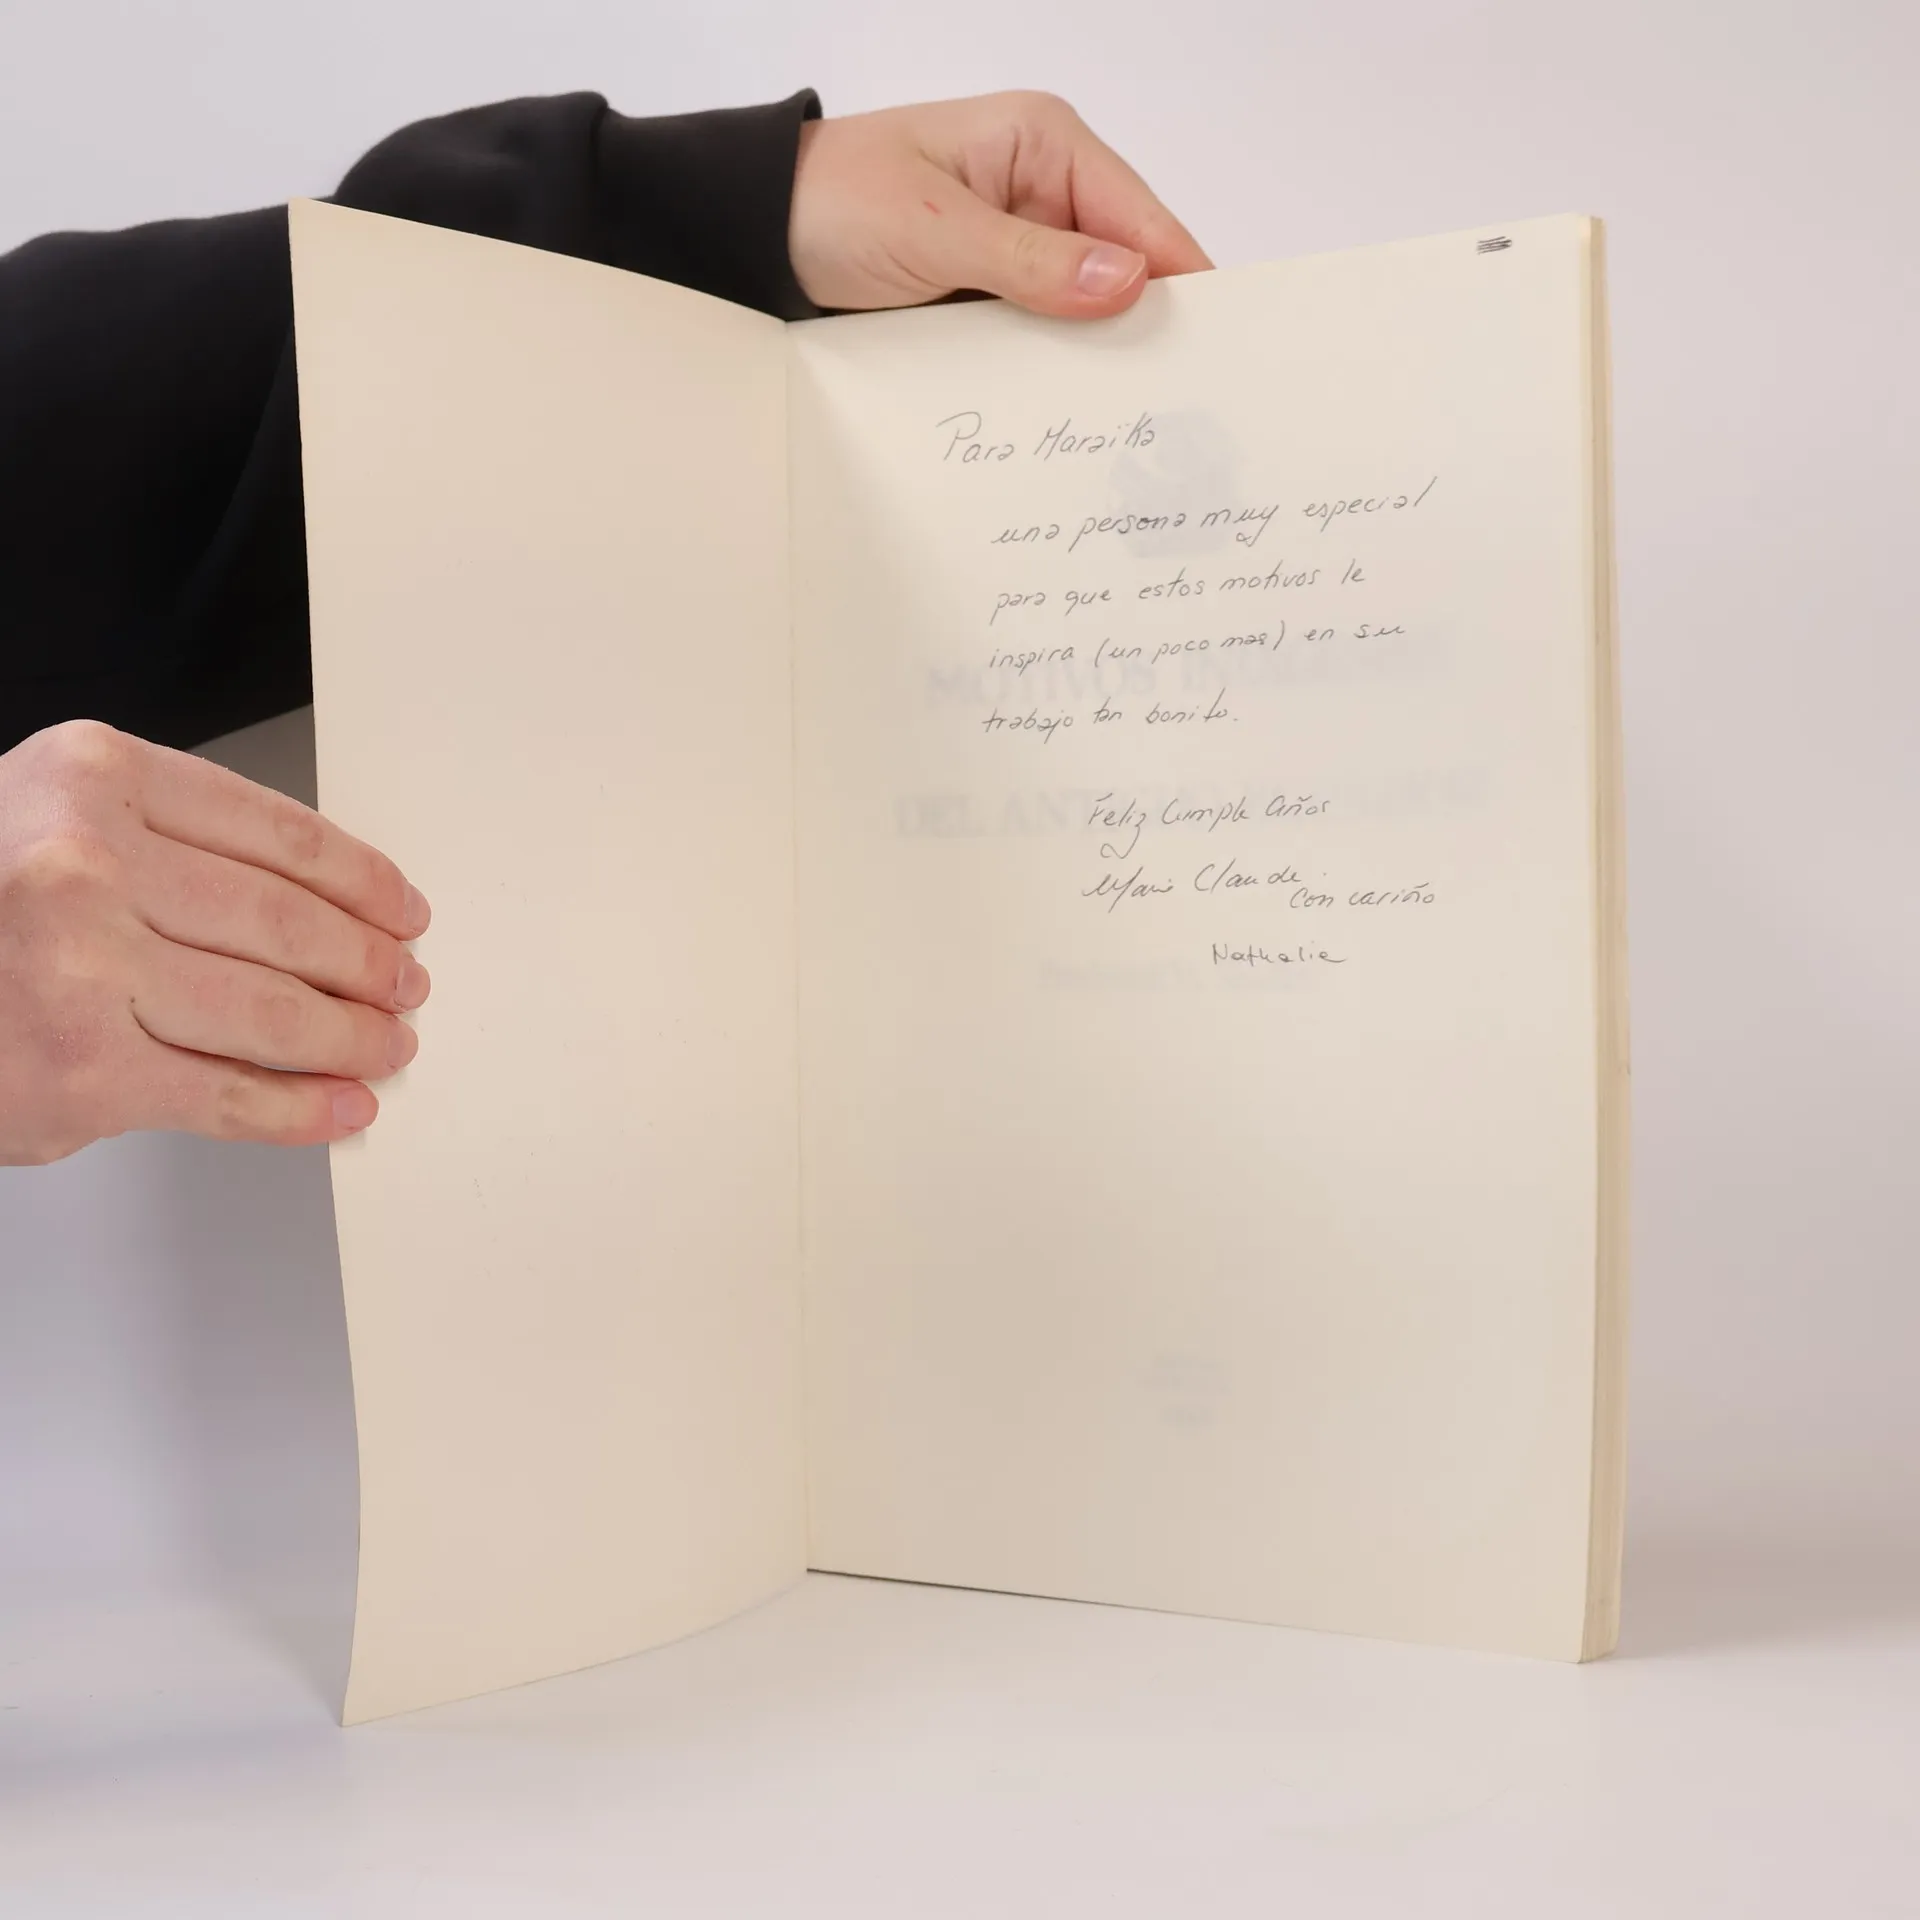 Para Maraïka
una persona muy especial
para que estos motivos le
inspira (un poco mas) en su
trabajo tan bonito.
Feliz Cumple Años
Marie Claude.
Con cariño
Nathalie
MOTIVOS
DEL ANT